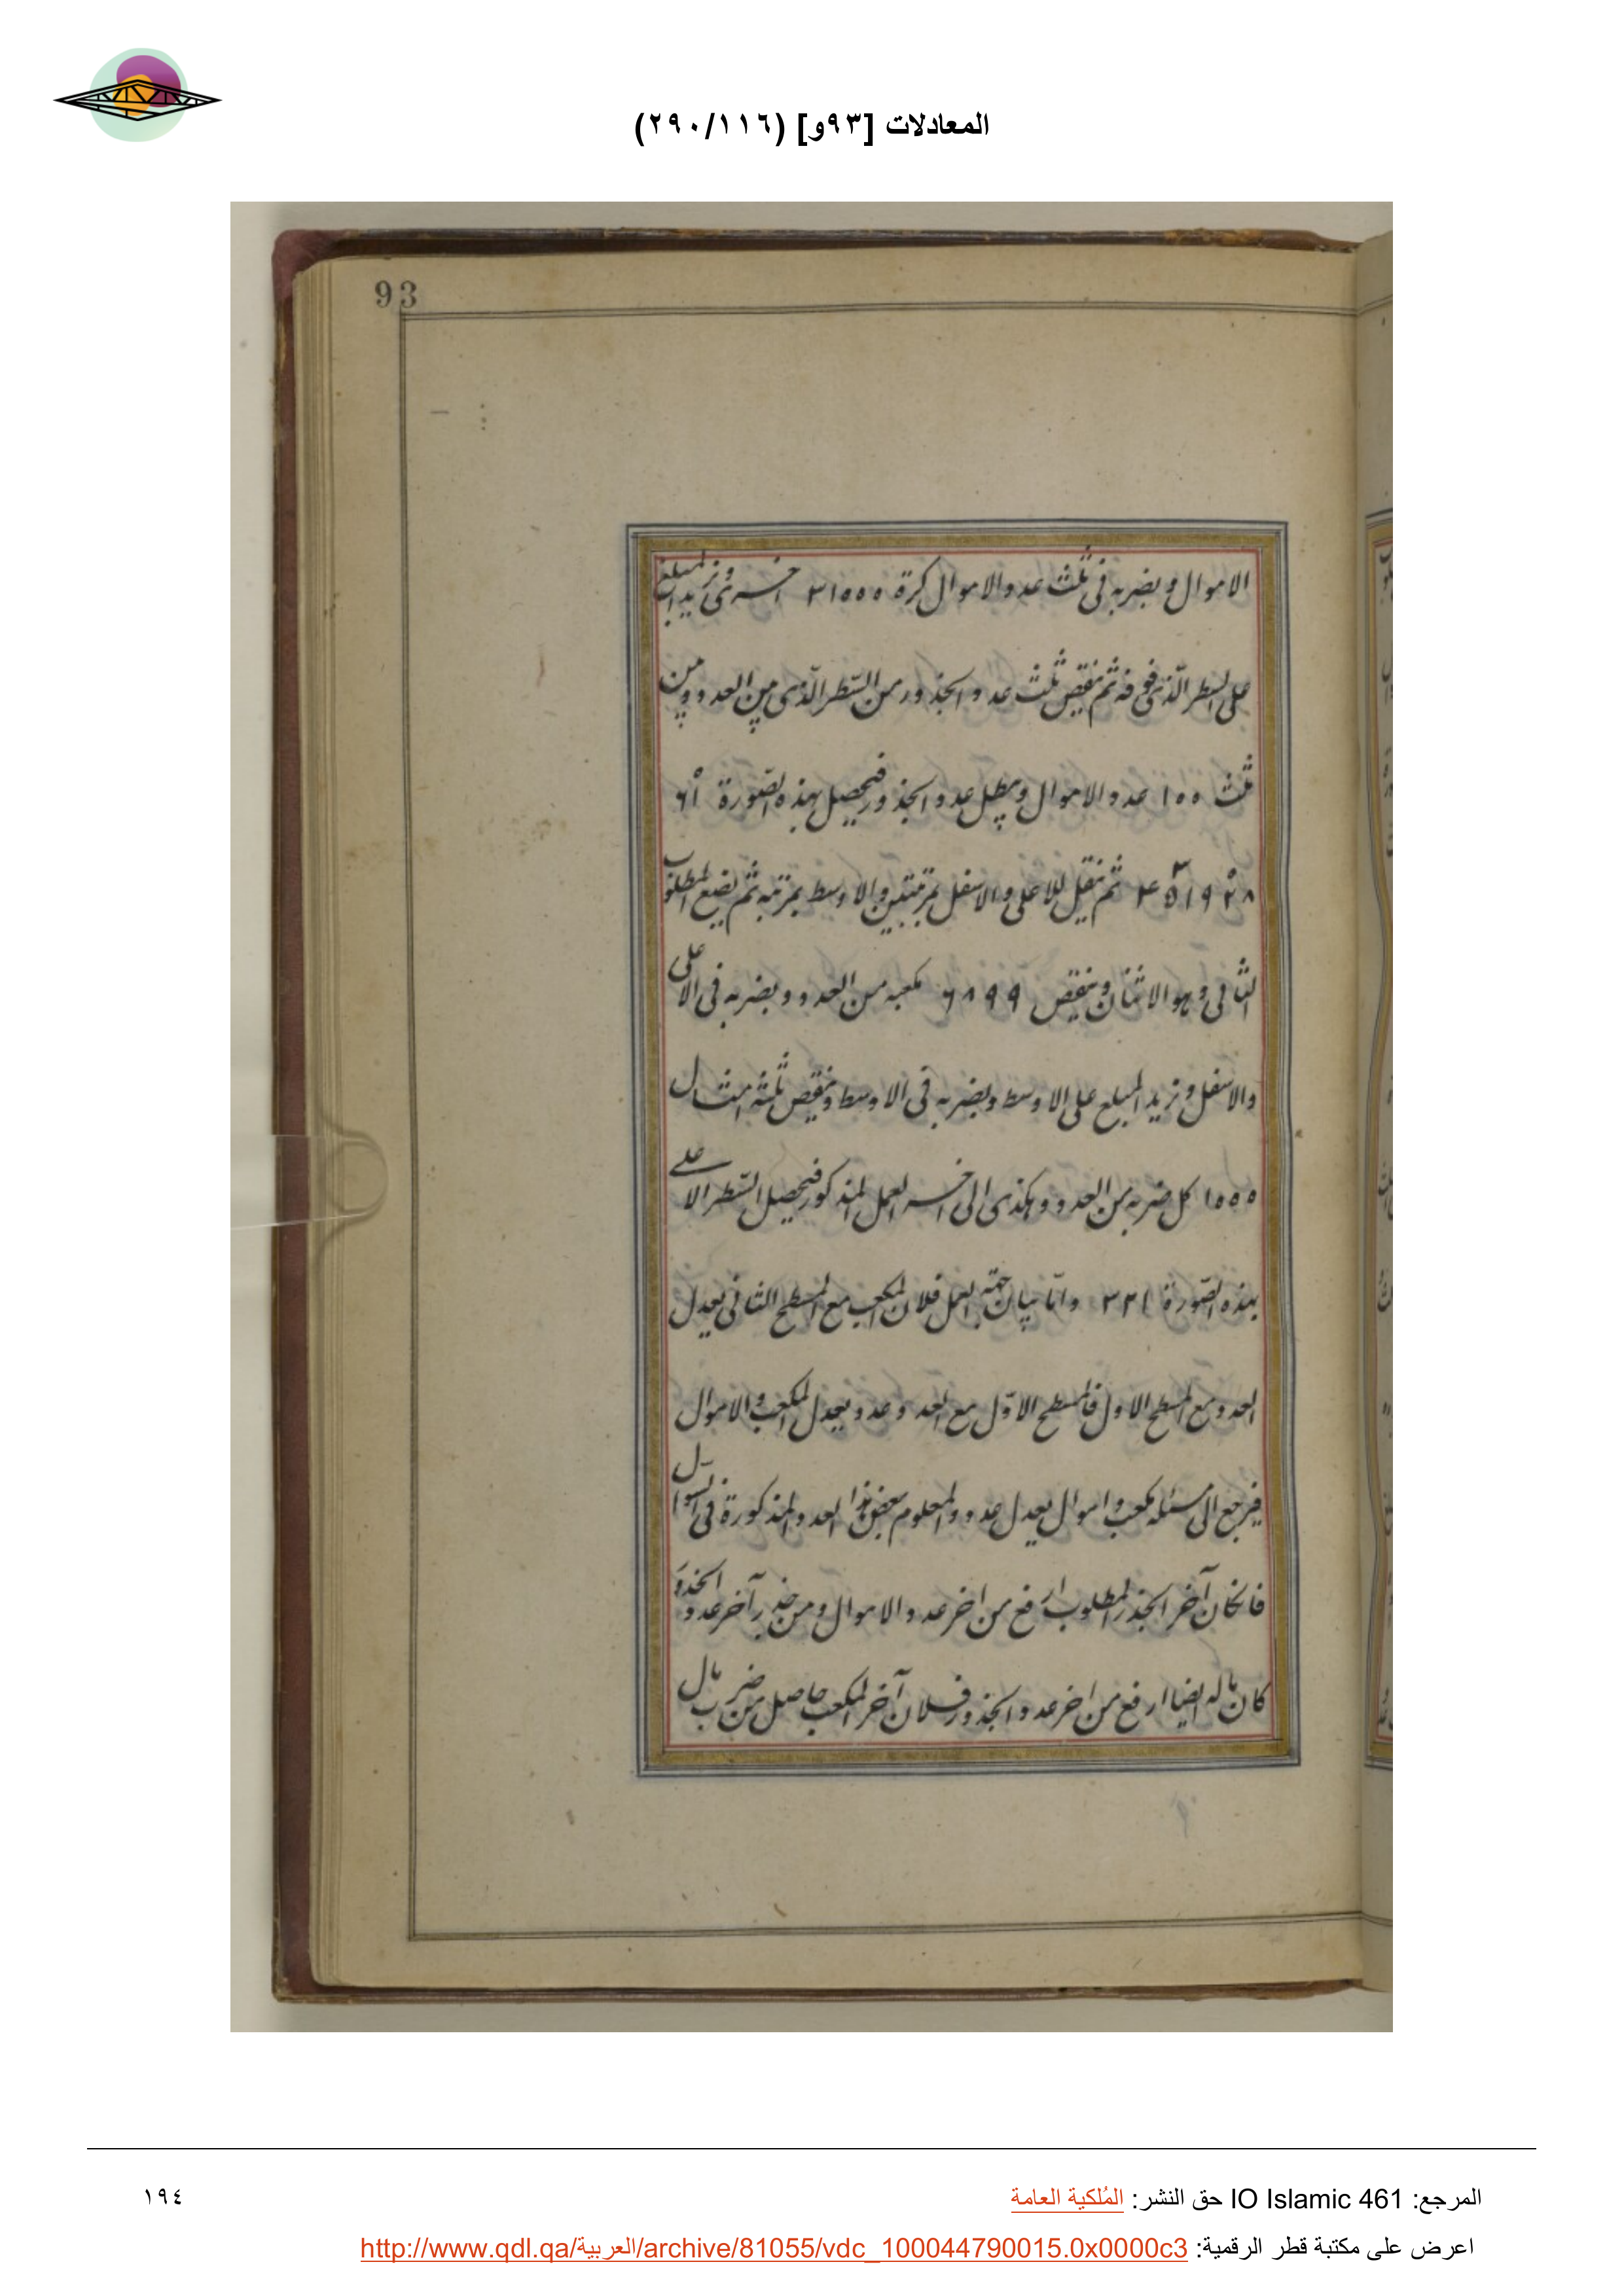 المعادلات [٩٣و] (٢٩٠/١١٦)
93
الاموال ويضربه فى ثلث عدد الاموال كرة ٣١٥٥٥ اخرى ونزيد المبلغ
على السطر الذى فوقه ثم ننقص ثلث عدد الجذور من السطر الذى بين العدد وبين
ثلث ١٥٥ عدد الاموال ونبطل عدد الجذور فيحصل بهذه الصورة
ثم ننقل للاعلى والاسفل بمرتبتين والاوسط بمرتبة ثم نضع المطلوب
الثانى وهو الاثنان وننقص ٦٨٩٩ مكعبه من العدد ويضربه فى الاعلى
والاسفل ونزيد المبلغ على الاوسط ويضربه فى الاوسط وننقص ثلثة امثال
١٥٥٥ كل ضربه من العدد وهكذى الى اخر العمل المذكور فيحصل السطر الاعلى
بهذه الصورة ٣٢١ وامّا بيان جهة العمل فلان المكعب مع المسطح الثانى يعدل
العدد مع المسطح الاول فالمسطح الاوّل مع العدد عدد يعدل المكعب والاموال
فيرجع الى مسئله مكعب واموال يعدل عدد والمعلوم بعض هذا العدد المذكورة فى السوآل
فانكان آخر الجذر المطلوب ارفع من اخر عدد الاموال ومن جذر آخر عدد الجذور
كان ماله ايضا ارفع من اخر عدد الجذور فلان آخر المكعب حاصل من ضرب مال
المرجع: IO Islamic 461 حق النشر: المُلكية العامة
١٩٤
اعرض على مكتبة قطر الرقمية: http://www.qdl.qa/العربية/archive/81055/vdc_100044790015.0x0000c3